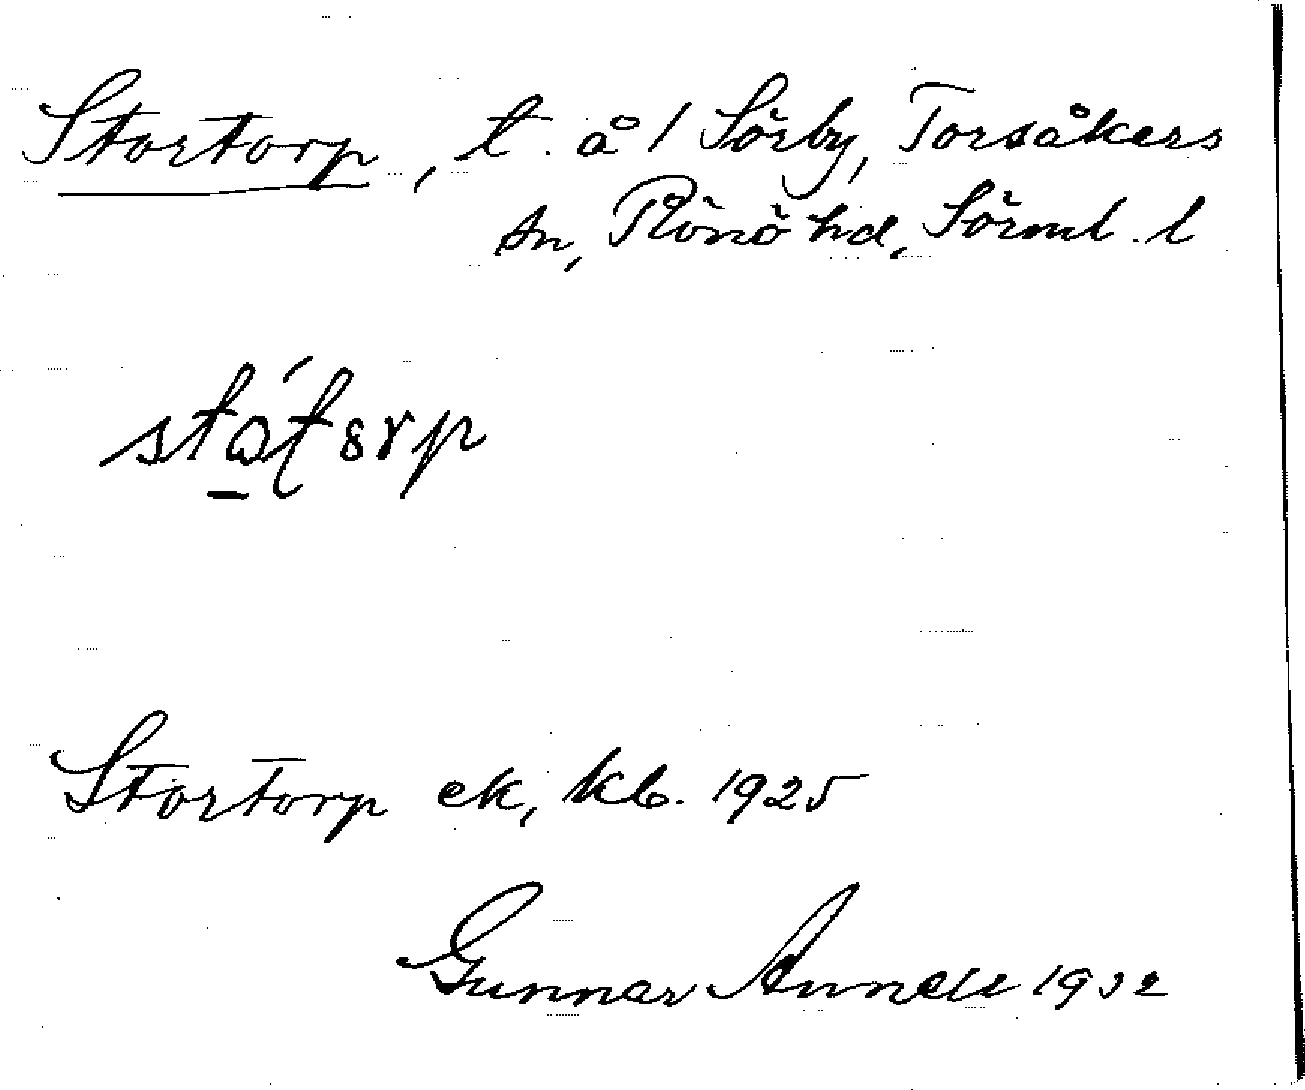 Stortorp, t. å 1 Sörby, Torsåkers
sn, Rönö hd, Sörml. l
Stortorp ek, kb. 1925
Gunnar Annell 1932